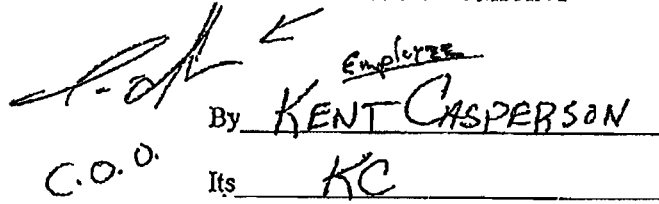 Employee
By KENT CASPERSON
C.O.O.
Its KC